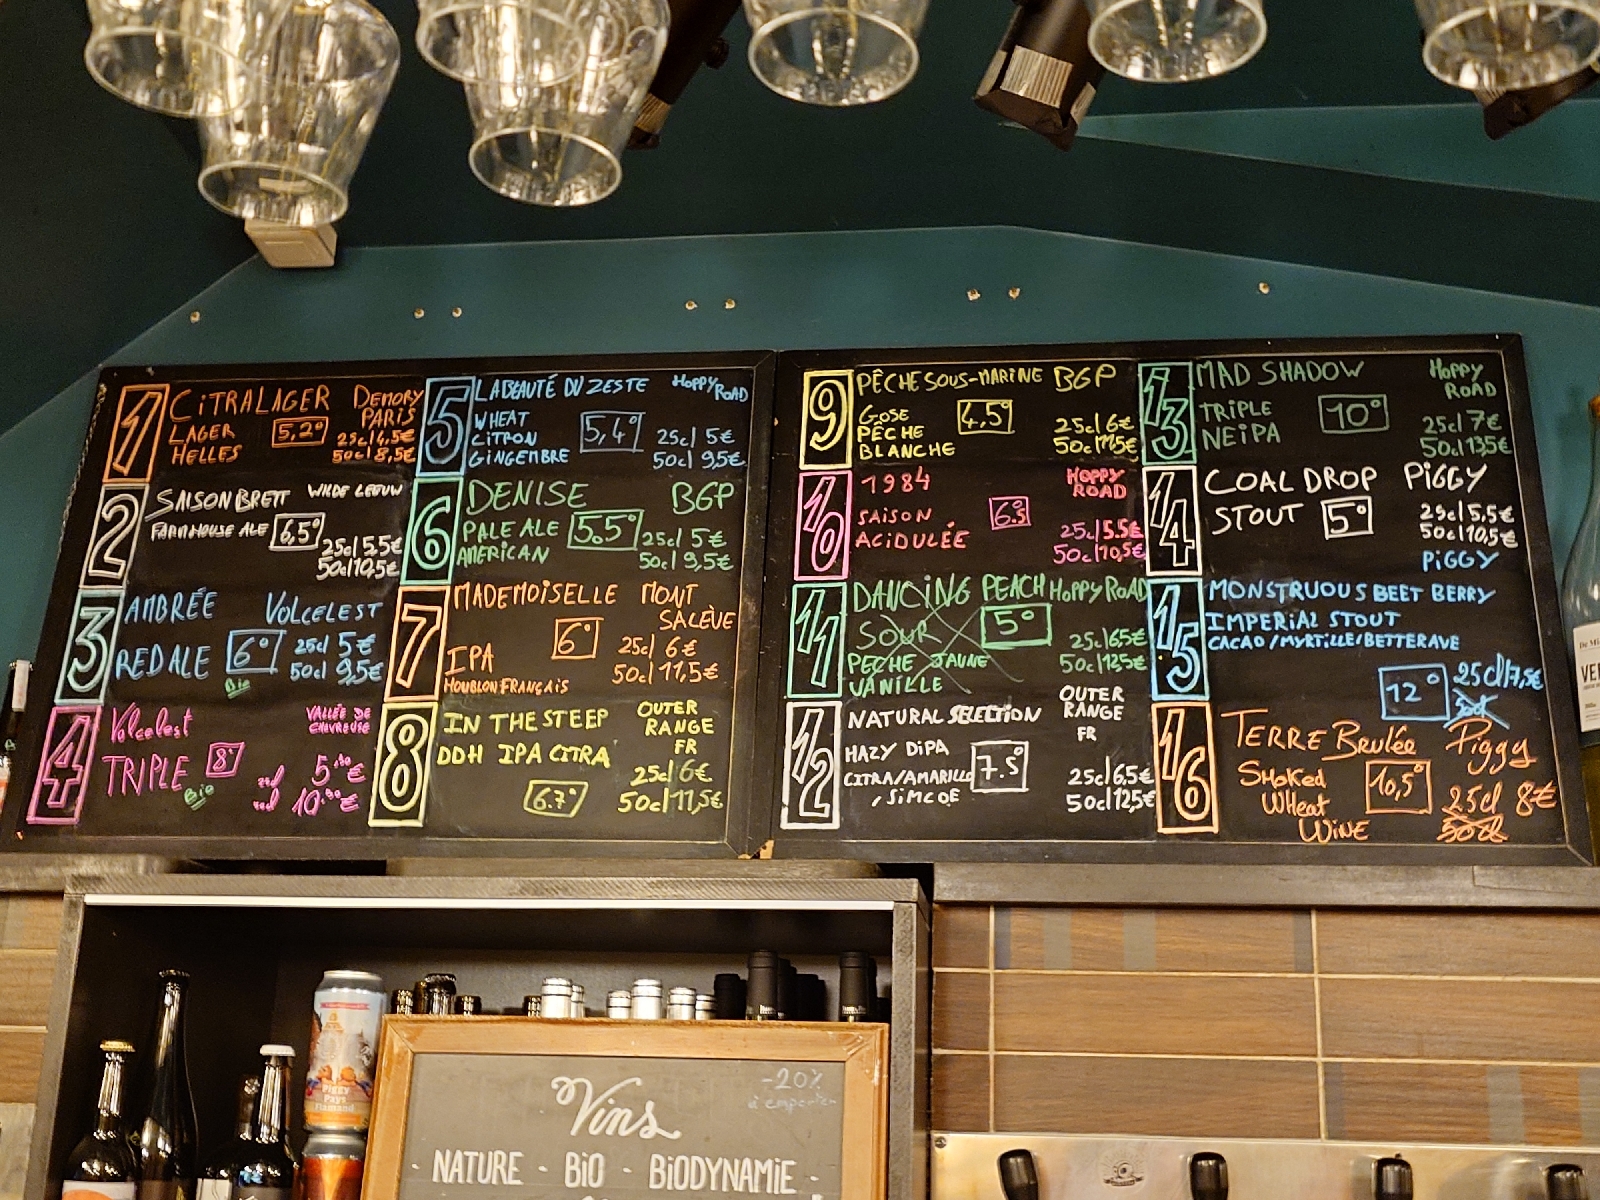 1
CITRALAGER
DEMORY
PARIS
LAGER
HELLES
5,2°
25cl 4,5€
50cl 8,5€
2
SAISON BRETT
WILDE LEEUW
FARMHOUSE ALE
6,5°
25cl 5,5€
50cl 10,5€
3
AMBRÉE
VOLCELEST
RED ALE
6°
Bio
25cl 5€
50cl 9,5€
4
Volcelest
VALLÉE DE
CHEVREUSE
TRIPLE
8°
Bio
5,50€
10,50€
5
LA BEAUTÉ DU ZESTE
HOPPY
ROAD
WHEAT
CITRON
GINGEMBRE
5,4°
25cl 5€
50cl 9,5€
6
DENISE
BGP
PALE ALE
AMERICAN
5.5°
25cl 5€
50cl 9,5€
7
MADEMOISELLE
MONT
SALÈVE
IPA
HOUBLON FRANÇAIS
6°
25cl 6€
50cl 11,5€
8
IN THE STEEP
OUTER
RANGE
FR
DDH IPA CITRA
6.7°
25cl 6€
50cl 11,5€
9
PÊCHE SOUS-MARINE
BGP
GOSE
PÊCHE
BLANCHE
4,5°
25cl 6€
50cl 11,5€
10
1984
HOPPY
ROAD
SAISON
ACIDULÉE
6.5
25cl 5.5€
50cl 10,5€
11
DANCING PEACH
HOPPY ROAD
SOUR
PECHE JAUNE
VANILLE
5°
25cl 6,5€
50cl 12,5€
12
NATURAL SELECTION
OUTER
RANGE
FR
HAZY DIPA
CITRA/AMARILLO
/SIMCOE
7.5°
25cl 6,5€
50cl 12,5€
13
MAD SHADOW
HOPPY
ROAD
TRIPLE
NEIPA
10°
25cl 7€
50cl 13,5€
14
COAL DROP
PIGGY
STOUT
5°
25cl 5,5€
50cl 10,5€
15
PIGGY
MONSTRUOUS BEET BERRY
IMPERIAL STOUT
CACAO/MYRTILLE/BETTERAVE
12°
25cl 7,5€
50cl
16
TERRE Brulée
Piggy
SMOKED
WHEAT
WINE
10,5°
25cl 8€
50cl
Piggy
Pays
Flamand
Vins
-20%
à emporter
NATURE - BIO - BIODYNAMIE -